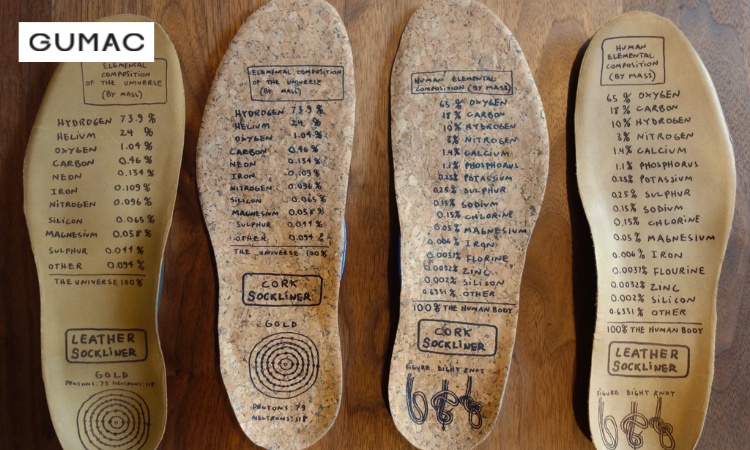 GUMAC
ELEMENTAL
COMPOSITION
OF THE UNIVERSE
(BY MASS)
HYDROGEN 73.9 %
HELIUM 24 %
OXYGEN 1.04 %
CARBON 0.46 %
NEON 0.134 %
IRON 0.109 %
NITROGEN 0.096 %
SILICON 0.065 %
MAGNESIUM 0.058 %
SULPHUR 0.044 %
OTHER 0.094 %
THE UNIVERSE 100%
LEATHER
SOCKLINER
GOLD
PROTONS: 79 NEUTRONS: 118
ELEMENTAL COMPOSITION
OF THE UNIVERSE
(BY MASS)
HYDROGEN 73.9 %
HELIUM 24 %
OXYGEN 1.04 %
CARBON 0.46 %
NEON 0.134 %
IRON 0.109 %
NITROGEN 0.096 %
SILICON 0.065 %
MAGNESIUM 0.058 %
SULPHUR 0.044 %
OTHER 0.094 %
THE UNIVERSE 100%
CORK
SOCKLINER
GOLD
PROTONS: 79
NEUTRONS: 118
HUMAN ELEMENTAL
COMPOSITION (BY MASS)
65 % OXYGEN
18 % CARBON
10 % HYDROGEN
3% NITROGEN
1.4% CALCIUM
1.1% PHOSPHORUS
0.25% POTASSIUM
0.25% SULPHUR
0.15% SODIUM
0.15% CHLORINE
0.05% MAGNESIUM
0.006% IRON
0.0037% FLORINE
0.0032% ZINC
0.002% SILICON
0.6351% OTHER
100% THE HUMAN BODY
CORK
SOCKLINER
FIGURE EIGHT KNOT
HUMAN
ELEMENTAL
COMPOSITION
(BY MASS)
65 % OXYGEN
18 % CARBON
10% HYDROGEN
3% NITROGEN
1.4% CALCIUM
1.1% PHOSPHORUS
0.25% POTASSIUM
0.25% SULPHUR
0.15% SODIUM
0.15% CHLORINE
0.05% MAGNESIUM
0.006% IRON
0.0037% FLOURINE
0.0032% ZINC
0.002% SILICON
0.6351% OTHER
100% THE HUMAN BODY
LEATHER
SOCKLINER
FIGURE EIGHT KNOT